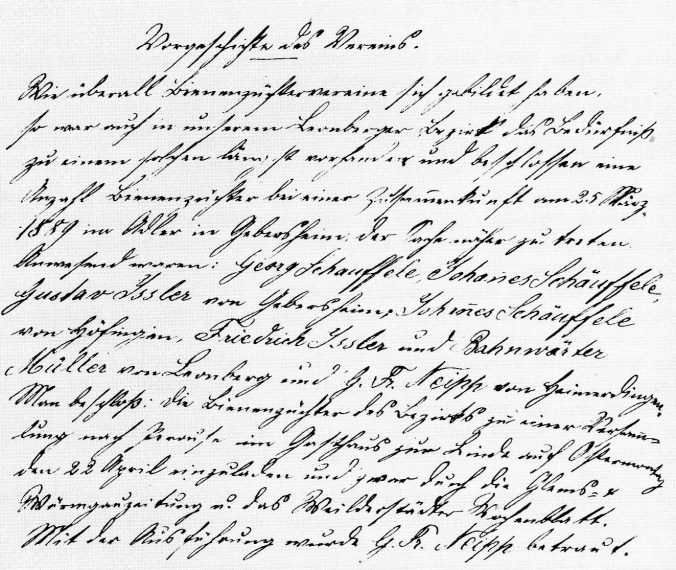 Vorgeschichte des Vereins.
Wie überall Bienenzüchtervereine sich gebildet haben,
so war auch in unserem Leonberger Bezirk das Bedürfniß
zu einem solchen längst vorhanden und beschlossen eine
Anzahl Bienenzüchter bei einer Zusammenkunft am 25 März
1889 im Adler in Gebersheim, der Sache näher zu treten.
Anwesend waren: Georg Schäuffele, Johanes Schäuffele,
Gustav Issler von Gebersheim, Johnes Schäuffele
von Höfingen, Friedrich Issler und Bahnwärter
Müller von Leonberg und G. F. Neipp von Heimerdingen.
Man beschloß: die Bienenzüchter des Bezirks zu einer Versam-
lung nach Perouse im Gasthaus zur Linde auf Ostermontag
den 22 April einzuladen und zwar durch die Glems- &
Würmgauzeitung u. das Weilderstädter Wochenblatt.
Mit der Ausführung wurde G. F. Neipp betraut.